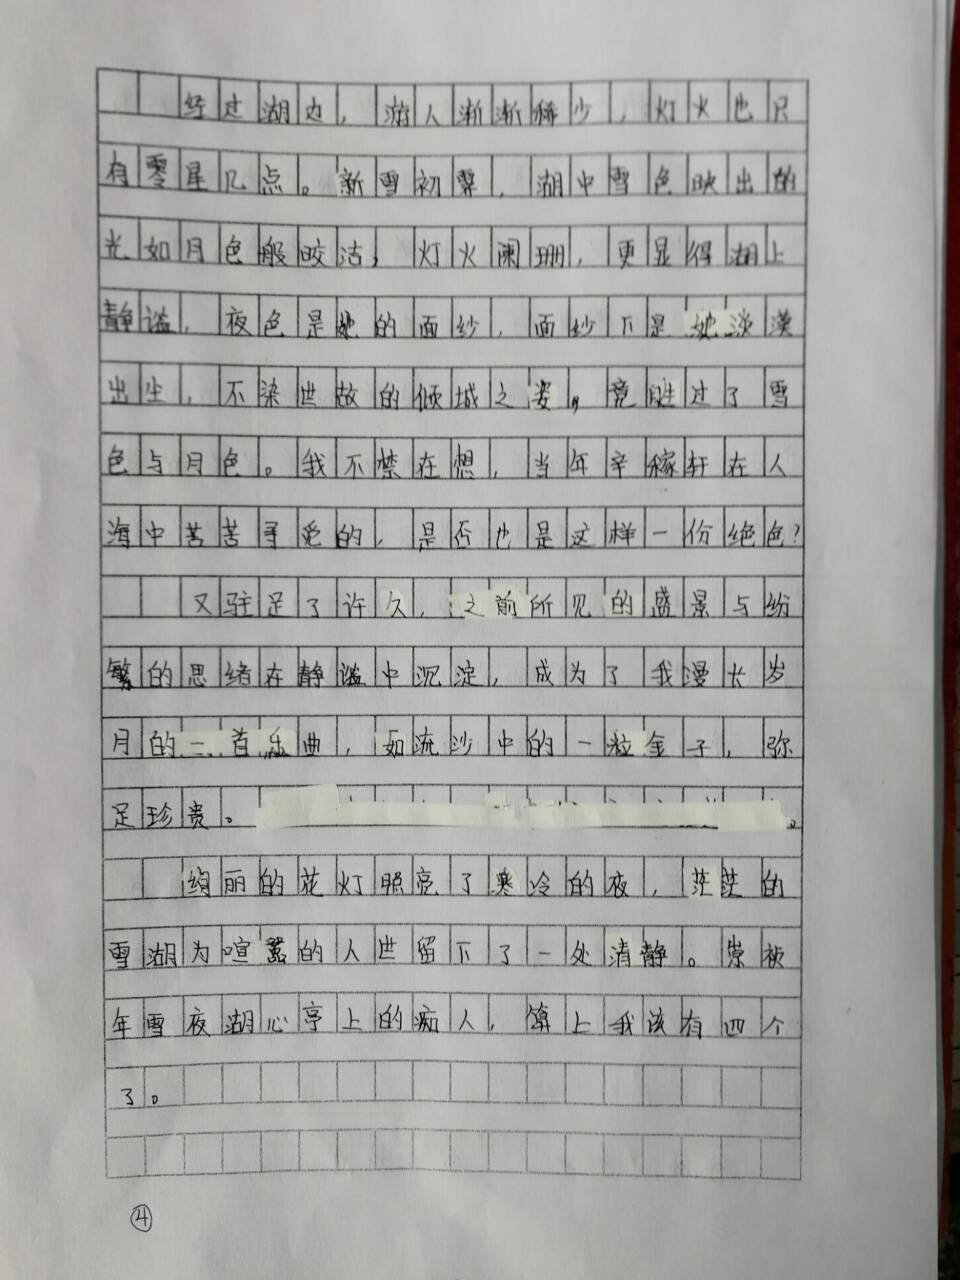 经过湖边，游人渐渐稀少，灯火也只
有零星几点。新雪初霁，湖中雪色映出的
光如月色般皎洁；灯火阑珊，更显得湖上
静谧，夜色是她的面纱，面纱下是她淡漠
出尘，不染世故的倾城之姿，竟胜过了雪
色与月色。我不禁在想，当年辛稼轩在人
海中苦苦寻觅的，是否也是这样一份绝色？
又驻足了许久，之前所见的盛景与纷
繁的思绪在静谧中沉淀，成为了我漫长岁
月的一首乐曲，如流沙中的一粒金子，弥
足珍贵。
绚丽的花灯照亮了寒冷的夜，茫茫的
雪湖为喧嚣的人世留下了一处清静。崇祯
年雪夜湖心亭上的痴人，算上我该有四个
了。
④